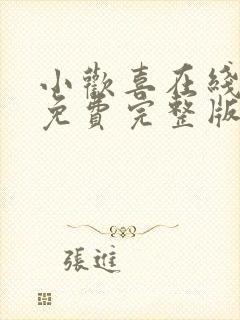 小歡喜在綫
免費完整版
張進